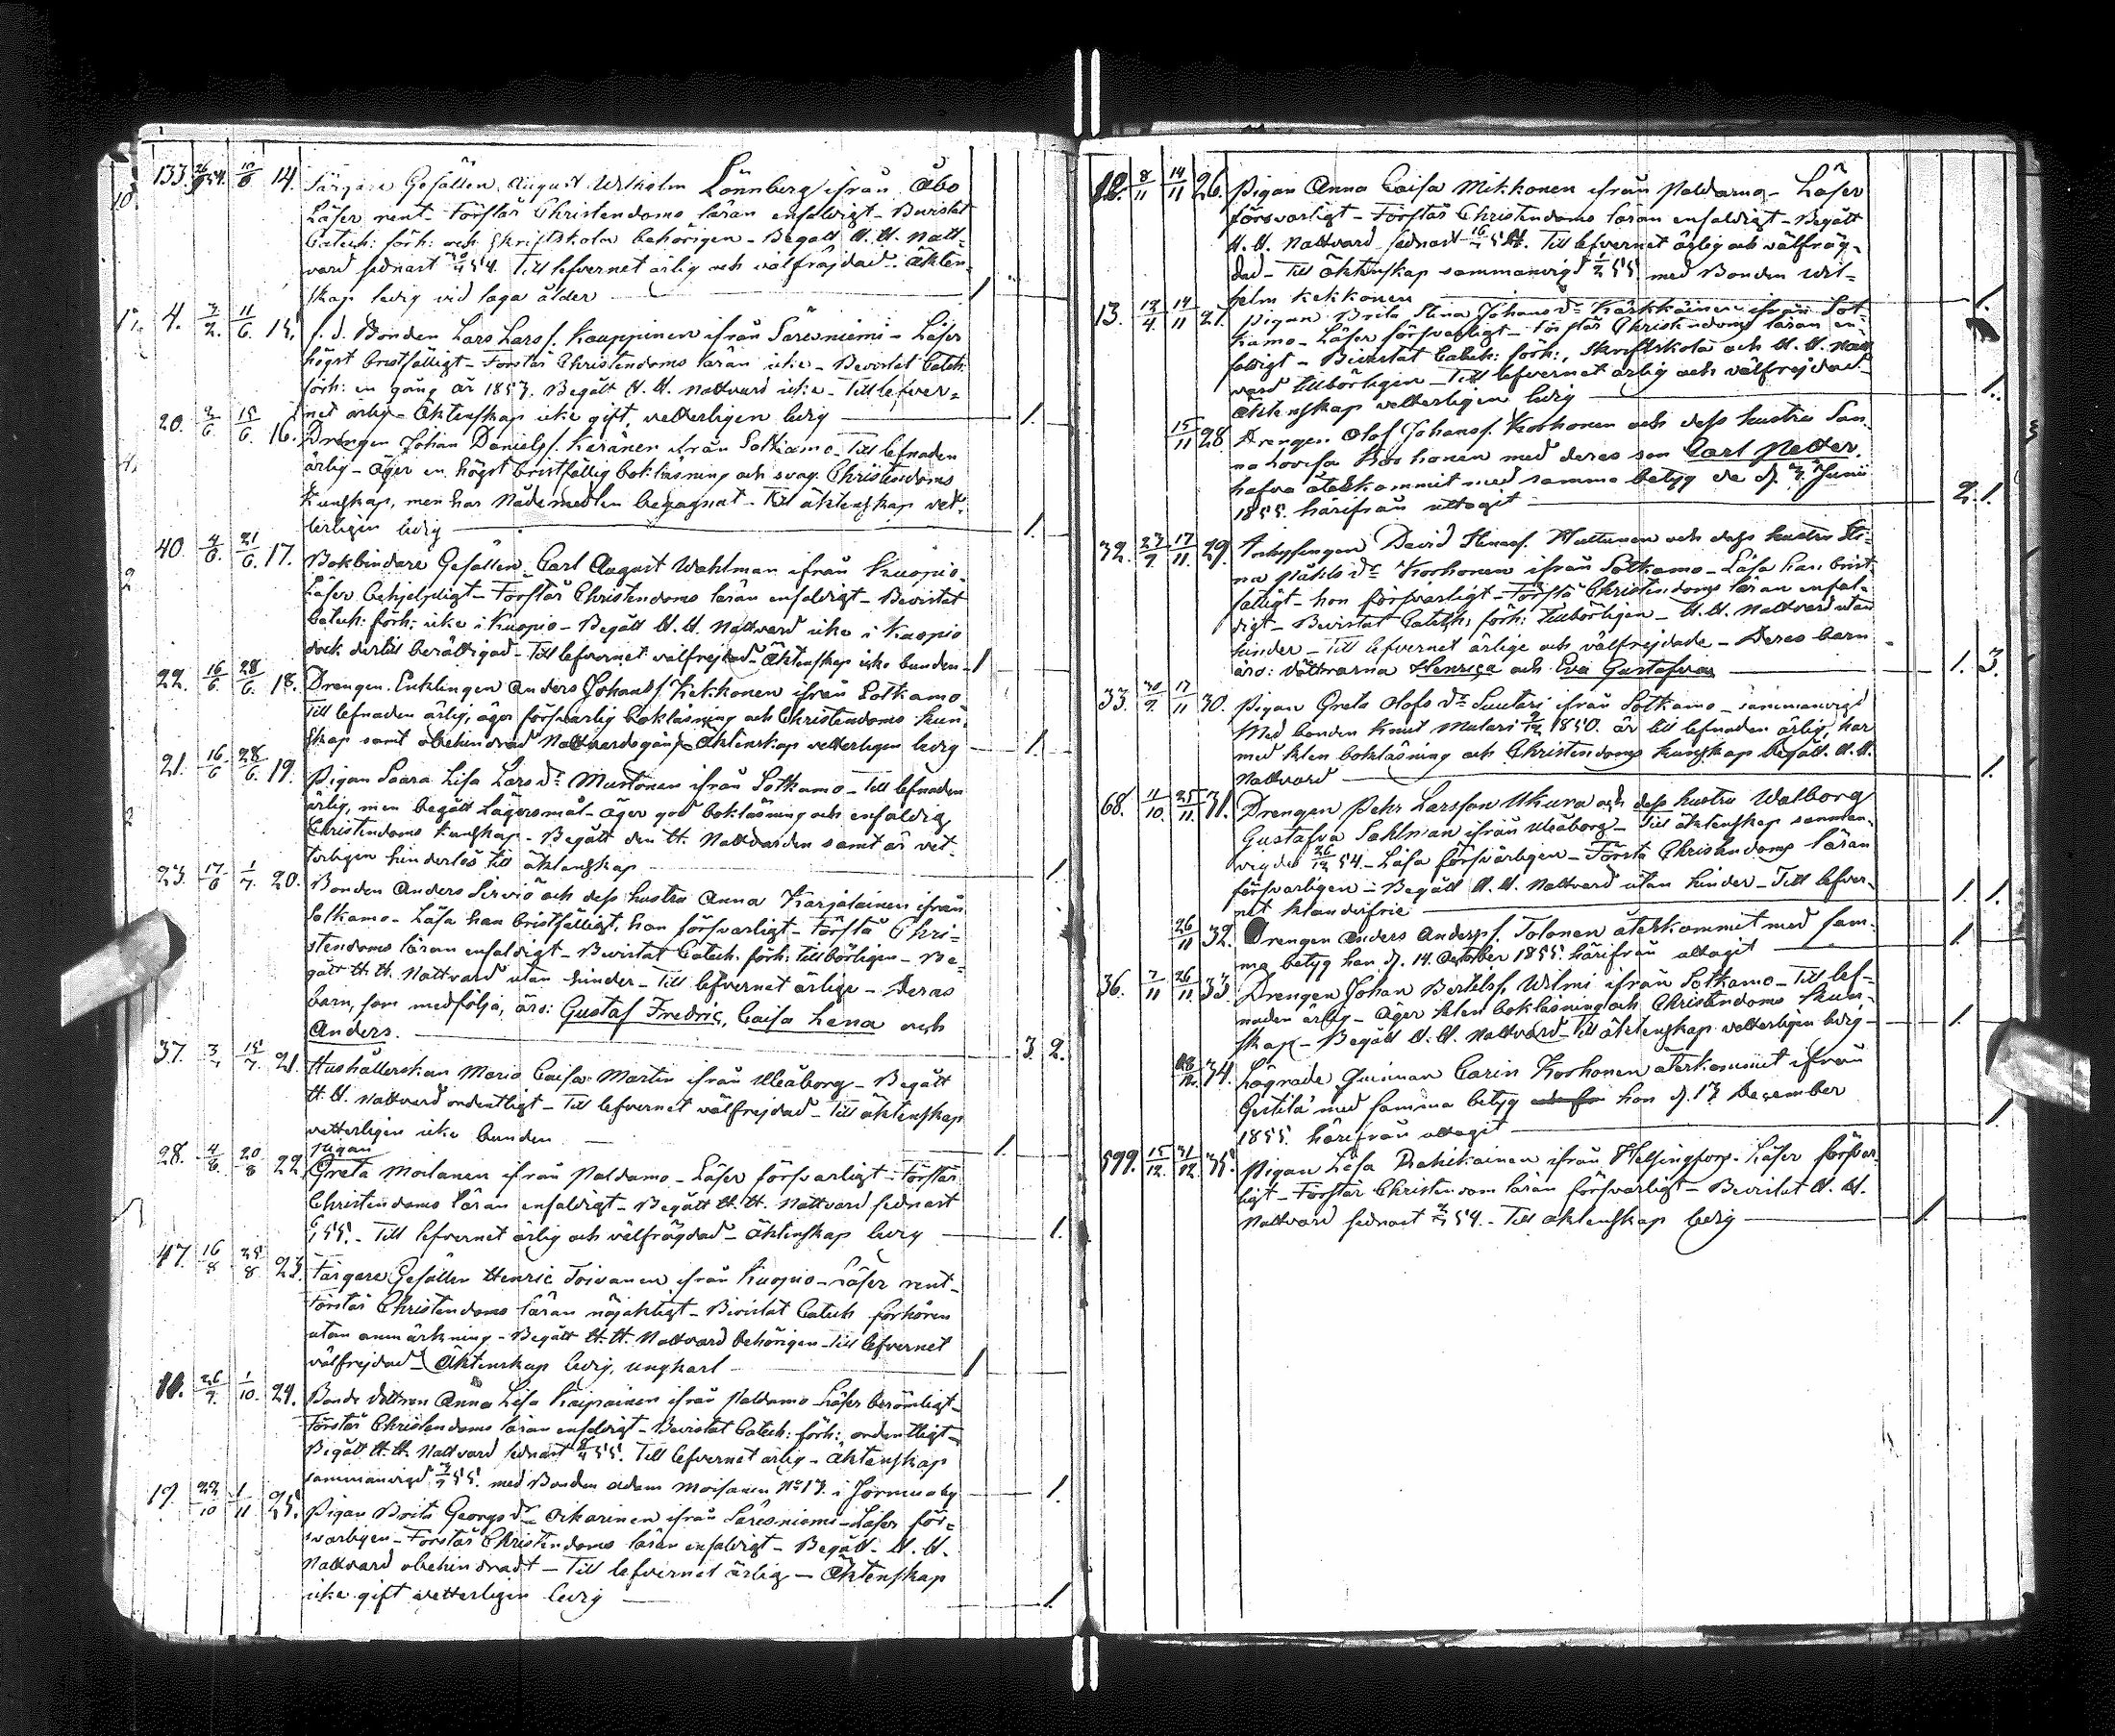 133. 26/9 54. 10/6 14. Färgare Gesällen August Wilhelm Lönnberg ifrån Åbo
Läser rent - Förstår Christendoms läran enfaldigt - Bevistat
Catech: förh: och Skriftskolor behörigen - Begått H. H. Natt-
vard sednast 54. Till lefvernet ärlig och välfräjdad - Äkten-
skap ledig vid laga ålder 1
4. 2/2. 11/6. 15. f. d. Bonden Lars Larsf. Kauppinen ifrån Säresniemi - Läser
högst bristfälligt - Förstår Christendoms läran icke - Bevistat Catech:
förh: en gång år 1853. Begått H. H. Nattvard icke - Till lefver-
net ärlig - Äktenskap icke gift, vetterligen ledig 1.
20. 2/6 15/6. 16. Drengen Johan Danielsf. Keränen ifrån Sotkamo - Till lefnaden
ärlig - Äger en högst bristfällig bokläsning och svag Christendoms
kunskap, men har Nådemedlen begagnat - Till äktenskap vet-
terligen ledig 1.
40. 4/6. 21/6. 17. Bokbindare Gesällen Carl August Wahlman ifrån Kuopio -
Läser behjelpligt - Förstår Christendoms läran enfaldigt - Bevistat
Catech: förh: icke i Kuopio - Begått H. H. Nattvard icke i Kuopio
dock dertill berättigad - Till lefvernet välfrejdad - Äktenskap icke bunden - 1
22. 16/6. 28/6. 18. Drengen Enklingen Anders Johansf. Kekkonen ifrån Sotkamo
Till lefnaden ärlig, äger försvarlig bokläsning och Christendoms kun-
skap samt obehindrad Nattvardsgång - Äktenskap vetterligen ledig 1.
21. 16/6 28/6. 19. Pigan Saara Lisa Larsdr Mustonen ifrån Sotkamo - Till lefnaden
ärlig, men begått Lägersmål - äger god bokläsning och enfaldig
Christendoms kunskap - Begått den H. Nattvarden samt är vet-
terligen hinderlös till äktenskap 1.
23. 17/6 1/7. 20. Bonden Anders Sirviö och dess hustru Anna Karjalainen ifrån
Sotkamo - Läsa han bristfälligt, hon försvarligt - Förstå Chri-
stendoms läran enfaldigt - Bevistat Catech. förh: tillbörligen - Be-
gått H. H. Nattvard utan hinder - Till lefvernet ärlige - Deras
barn, som medfölja, äro: Gustaf Fredric, Caisa Lena och
Anders. 3. 2.
37. 15/7. 21. Hushållerskan Maria Caisa Martin ifrån Uleåborg - Begått
H. H. Nattvard ordentligt - Till lefvernet välfrejdad - Till äktenskap
vetterligen icke bunden 1.
28. 4/8. 20/8 22. Pigan
Greta Moilanen ifrån Paldamo - Läser försvarligt - Förstår
Christendoms läran enfaldigt - Begått H. H. Nattvard sednast
55. - Till lefvernet ärlig och välfrägdad - Äktenskap ledig 1.
47. 16/8 25/8 23. Färgare Gesällen Henric Toivanen ifrån Kuopio - Läser rent -
Förstår Christendoms läran nöjaktigt - Bevistat Catech förhören
utan anmärkning - Begått H. H. Nattvard behörigen - Till lefvernet
välfrejdad - Äktenskap ledig, ungkarl 1
10. 26/9. 1/10. 24. Bonde dottren Anna Lisa Kaipainen ifrån Paldamo - Läser berömligt -
Förstår Christendoms läran enfaldigt - Bevistat Catech: förh: ordentligt -
Begått H. H. Nattvard sednast 55. Till lefvernet ärlig - Äktenskap
sammanvigd 55. med Bonden Adam Moisanen No 17. i Jormua by 1.
19. 22/10 1/11 25. Pigan Brita Georgsdr Arkarinen ifrån Säresniemi - Läser för-
svarligen - Förstår Christendoms läran enfaldigt - Begått H. H.
Nattvard obehindradt - Till lefvernet ärlig - Äktenskap
icke gift vetterligen ledig 1.
12. 8/11 14/11 26. Pigan Anna Caisa Mikkonen ifrån Paldamo - Läser
försvarligt - Förstår Christendoms läran enfaldigt - Begått
H. H. Nattvard sednast Till lefvernet ärlig och välfräg-
dad - Till Äktenskap sammanvigd 55 med Bonden Wil-
helm Kekkonen 1.
13. 14/11 27. Pigan Brita Stina Johansdr Kärkkäinen ifrån Sot-
kamo - Läser försvarligt - Förstår Christendoms läran en-
faldigt - Bevistat Catech: förh:, Skriftskola och H. H. Natt-
vard tillbörligen - Till lefvernet ärlig och välfrejdad
Äktenskap vetterligen ledig 1.
15/11 28. Drengen Olof Johansf. Korhonen och dess hustru San-
na Lovisa Korhonen med deras son Carl Petter
hafva återkommit med samma betyg de d. 3 Junii
1855. härifrån uttagit 2. 1.
32. 23/9 17/11 29. Inhysingen David Huttunen och dess hustru Sti-
na Korhonen ifrån Sotkamo - Läsa han brist-
fälligt - hon försvarligt - Förstå Christendoms läran enfal-
digt - Bevistat Catech: förh: tillbörligen - H. H. Nattvard utan
hinder - Till lefvernet ärlige och välfrejdade - Deras barn
äro: döttrarna Henrica och Eva Gustafva 1. 3.
33. 30/9. 17/11 30. Pigan Greta Olofsdr Suutari ifrån Sotkamo - sammanvigd
Med bonden Knut Mulari 1850. är till lefnaden ärlig, har
med klen bokläsning och Christendoms kunskap begått H. H.
Nattvard 1.
68. 11/10. 25/11. 31. Drengen Pehr Larsson Ukura och dess hustru Walborg
Gustafva Sahlman ifrån Uleåborg - Till äktenskap samman-
vigdes 54. - Läsa försvarligen - Förstå Christendoms läran
försvarligen - Begått H. H. Nattvard utan hinder - Till lefver-
net klanderfrie 1. 1.
26/11 32. Drengen Anders Andersf. Tolonen återkommit med sam-
ma betyg han d. 14. October 1855. härifrån uttagit 1.
36. 2/11 26/11 33. Drengen Johan Bertilsf. Wilmi ifrån Sotkamo - Till lef-
naden ärlig - Äger klen bokläsning och Christendoms kun-
skap - Begått H. H. Nattvard - Till äktenskap vetterligen ledig 1.
34. Lägrade Qvinnan Carin Korhonen återkommit ifrån
Gestilä med samma betyg hon d. 13 December
1855. härifrån uttagit 1.
599. 15/12. 31/12. 35. Pigan Lisa ifrån Helsingfors - Läser försvar-
ligt - Förstår Christendoms läran försvarligt - Bevistat H. H.
Nattvard sednast 54. - Till äktenskap ledig 1.